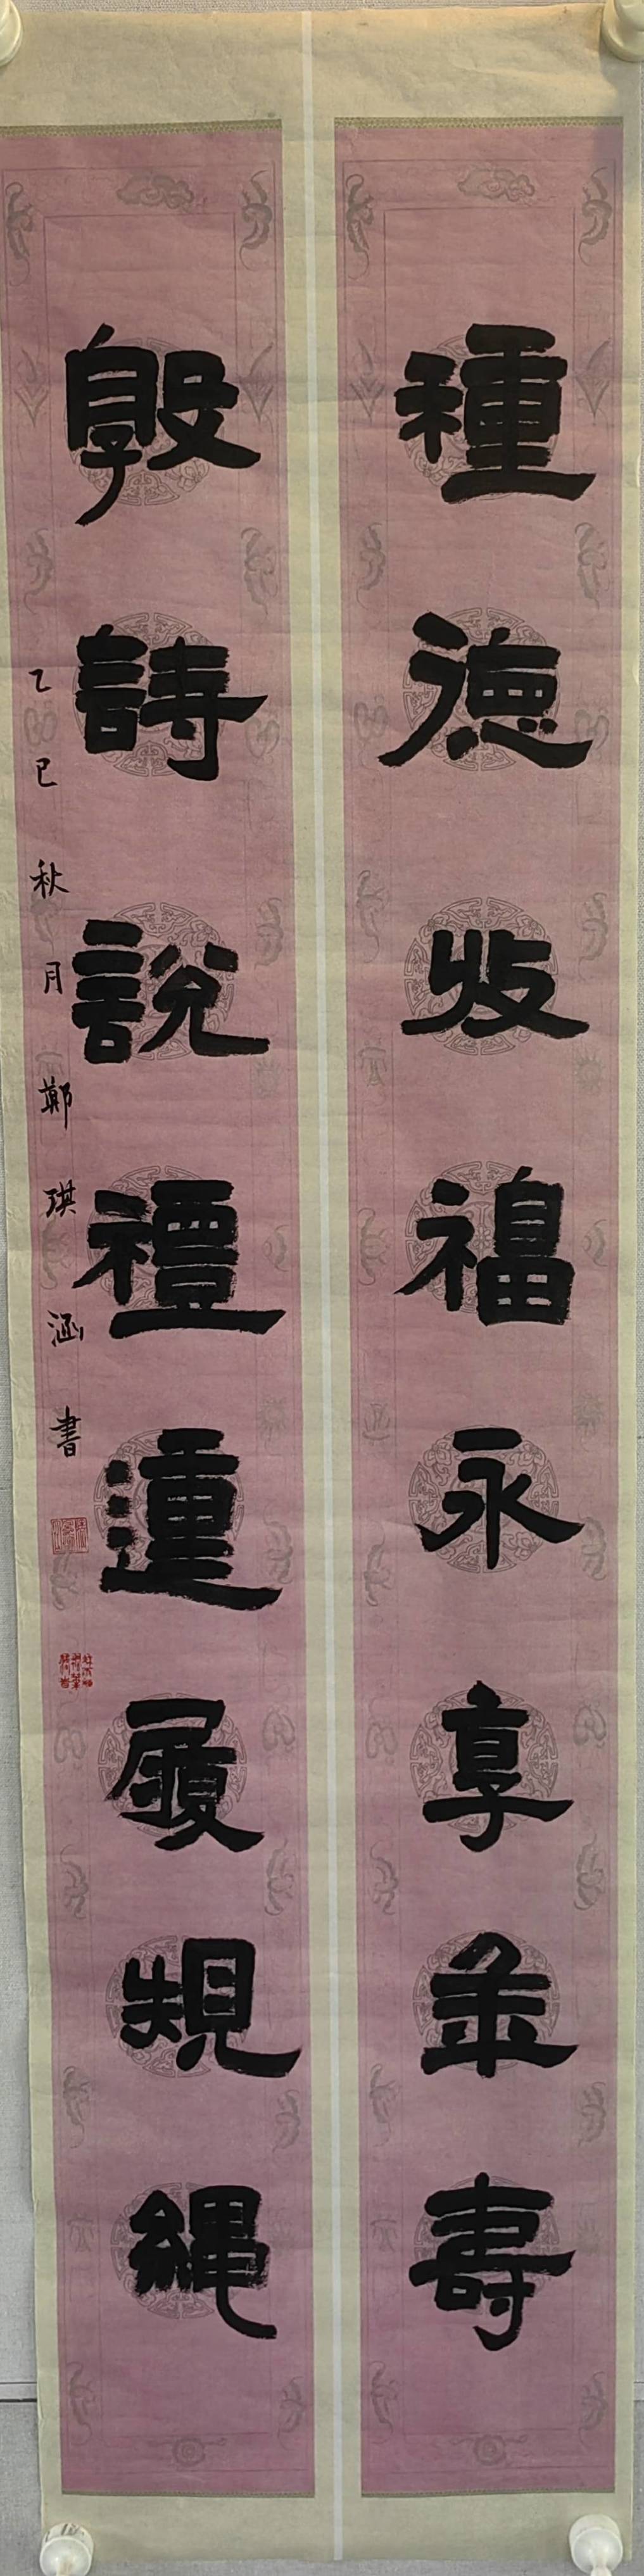 種德收福永享金壽
敦詩說禮還履規繩
乙巳秋月鄭琪涵書